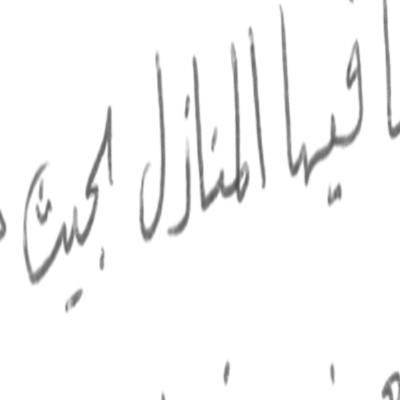 فيها المنازل بحيث